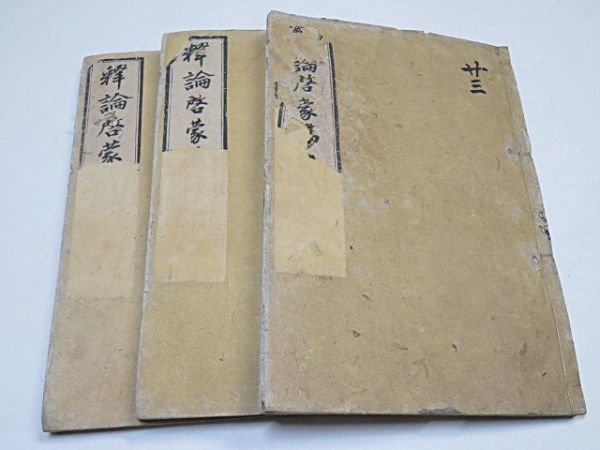 釋論啓蒙
釋論啓蒙
論啓蒙
廿三